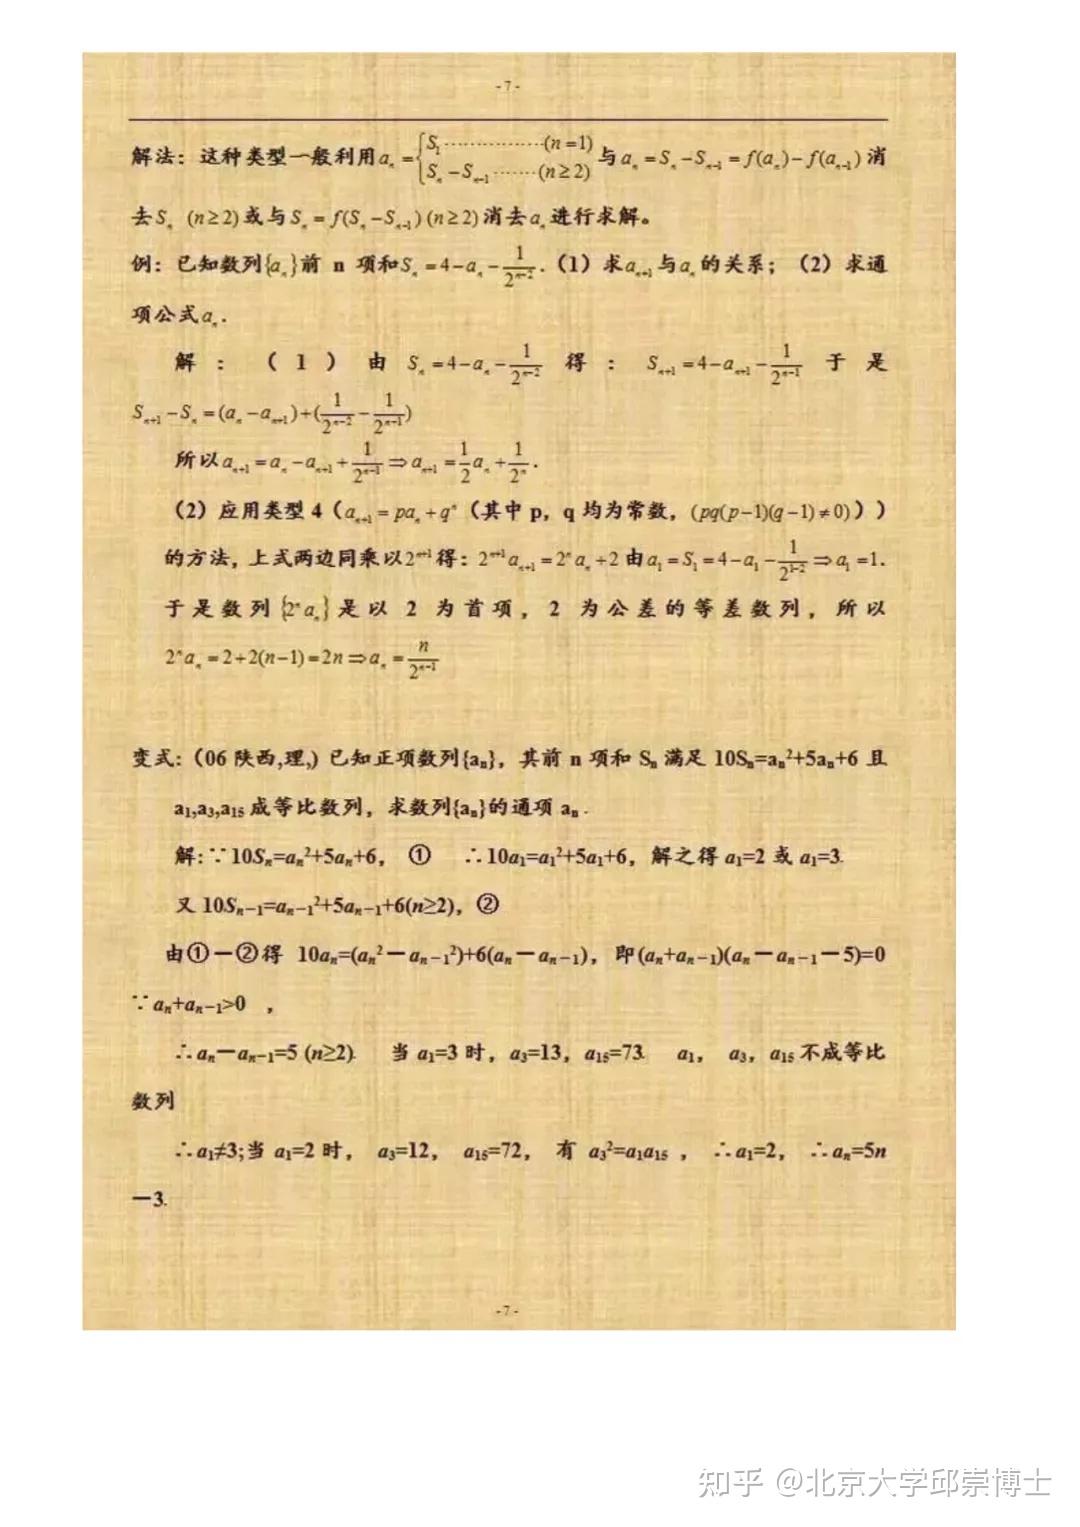 - 7 -
解法：这种类型一般利用 $a_n=\begin{cases}S_1\cdots\cdots\cdots\cdots(n=1)\\S_n-S_{n-1}\cdots\cdots(n\geq 2)\end{cases}$ 与 $a_n=S_n-S_{n-1}=f(a_n)-f(a_{n-1})$ 消
去 $S_n$ $(n\geq 2)$ 或与 $S_n=f(S_n-S_{n-1})$ $(n\geq 2)$ 消去 $a_n$ 进行求解。
例：已知数列 $\{a_n\}$ 前 n 项和 $S_n=4-a_n-\frac{1}{2^{n-2}}$.（1）求 $a_{n+1}$ 与 $a_n$ 的关系；（2）求通
项公式 $a_n$.
解：（1）由 $S_n=4-a_n-\frac{1}{2^{n-2}}$ 得：$S_{n+1}=4-a_{n+1}-\frac{1}{2^{n-1}}$ 于是
$S_{n+1}-S_n=(a_n-a_{n+1})+(\frac{1}{2^{n-2}}-\frac{1}{2^{n-1}})$
所以 $a_{n+1}=a_n-a_{n+1}+\frac{1}{2^{n-1}}\Rightarrow a_{n+1}=\frac{1}{2}a_n+\frac{1}{2^n}$.
（2）应用类型 4（$a_{n+1}=pa_n+q^n$（其中 p，q 均为常数，$(pq(p-1)(q-1)\neq 0)$））
的方法，上式两边同乘以 $2^{n+1}$ 得：$2^{n+1}a_{n+1}=2^na_n+2$ 由 $a_1=S_1=4-a_1-\frac{1}{2^{1-2}}\Rightarrow a_1=1$.
于是数列 $\{2^na_n\}$ 是以 2 为首项，2 为公差的等差数列，所以
$2^na_n=2+2(n-1)=2n\Rightarrow a_n=\frac{n}{2^{n-1}}$
变式:（06 陕西,理,）已知正项数列{aₙ}，其前 n 项和 Sₙ 满足 10Sₙ=aₙ²+5aₙ+6 且
a₁,a₃,a₁₅ 成等比数列，求数列{aₙ}的通项 aₙ .
解: ∵10Sₙ=aₙ²+5aₙ+6， ① ∴10a₁=a₁²+5a₁+6，解之得 a₁=2 或 a₁=3.
又 10Sₙ₋₁=aₙ₋₁²+5aₙ₋₁+6(n≥2)，②
由①－②得 10aₙ=(aₙ²－aₙ₋₁²)+6(aₙ－aₙ₋₁)，即(aₙ+aₙ₋₁)(aₙ－aₙ₋₁－5)=0
∵aₙ+aₙ₋₁>0 ，
∴aₙ－aₙ₋₁=5 (n≥2). 当 a₁=3 时，a₃=13，a₁₅=73. a₁， a₃，a₁₅ 不成等比
数列
∴a₁≠3;当 a₁=2 时， a₃=12， a₁₅=72， 有 a₃²=a₁a₁₅ ， ∴a₁=2， ∴aₙ=5n
－3.
- 7 -
知乎 @北京大学邱崇博士